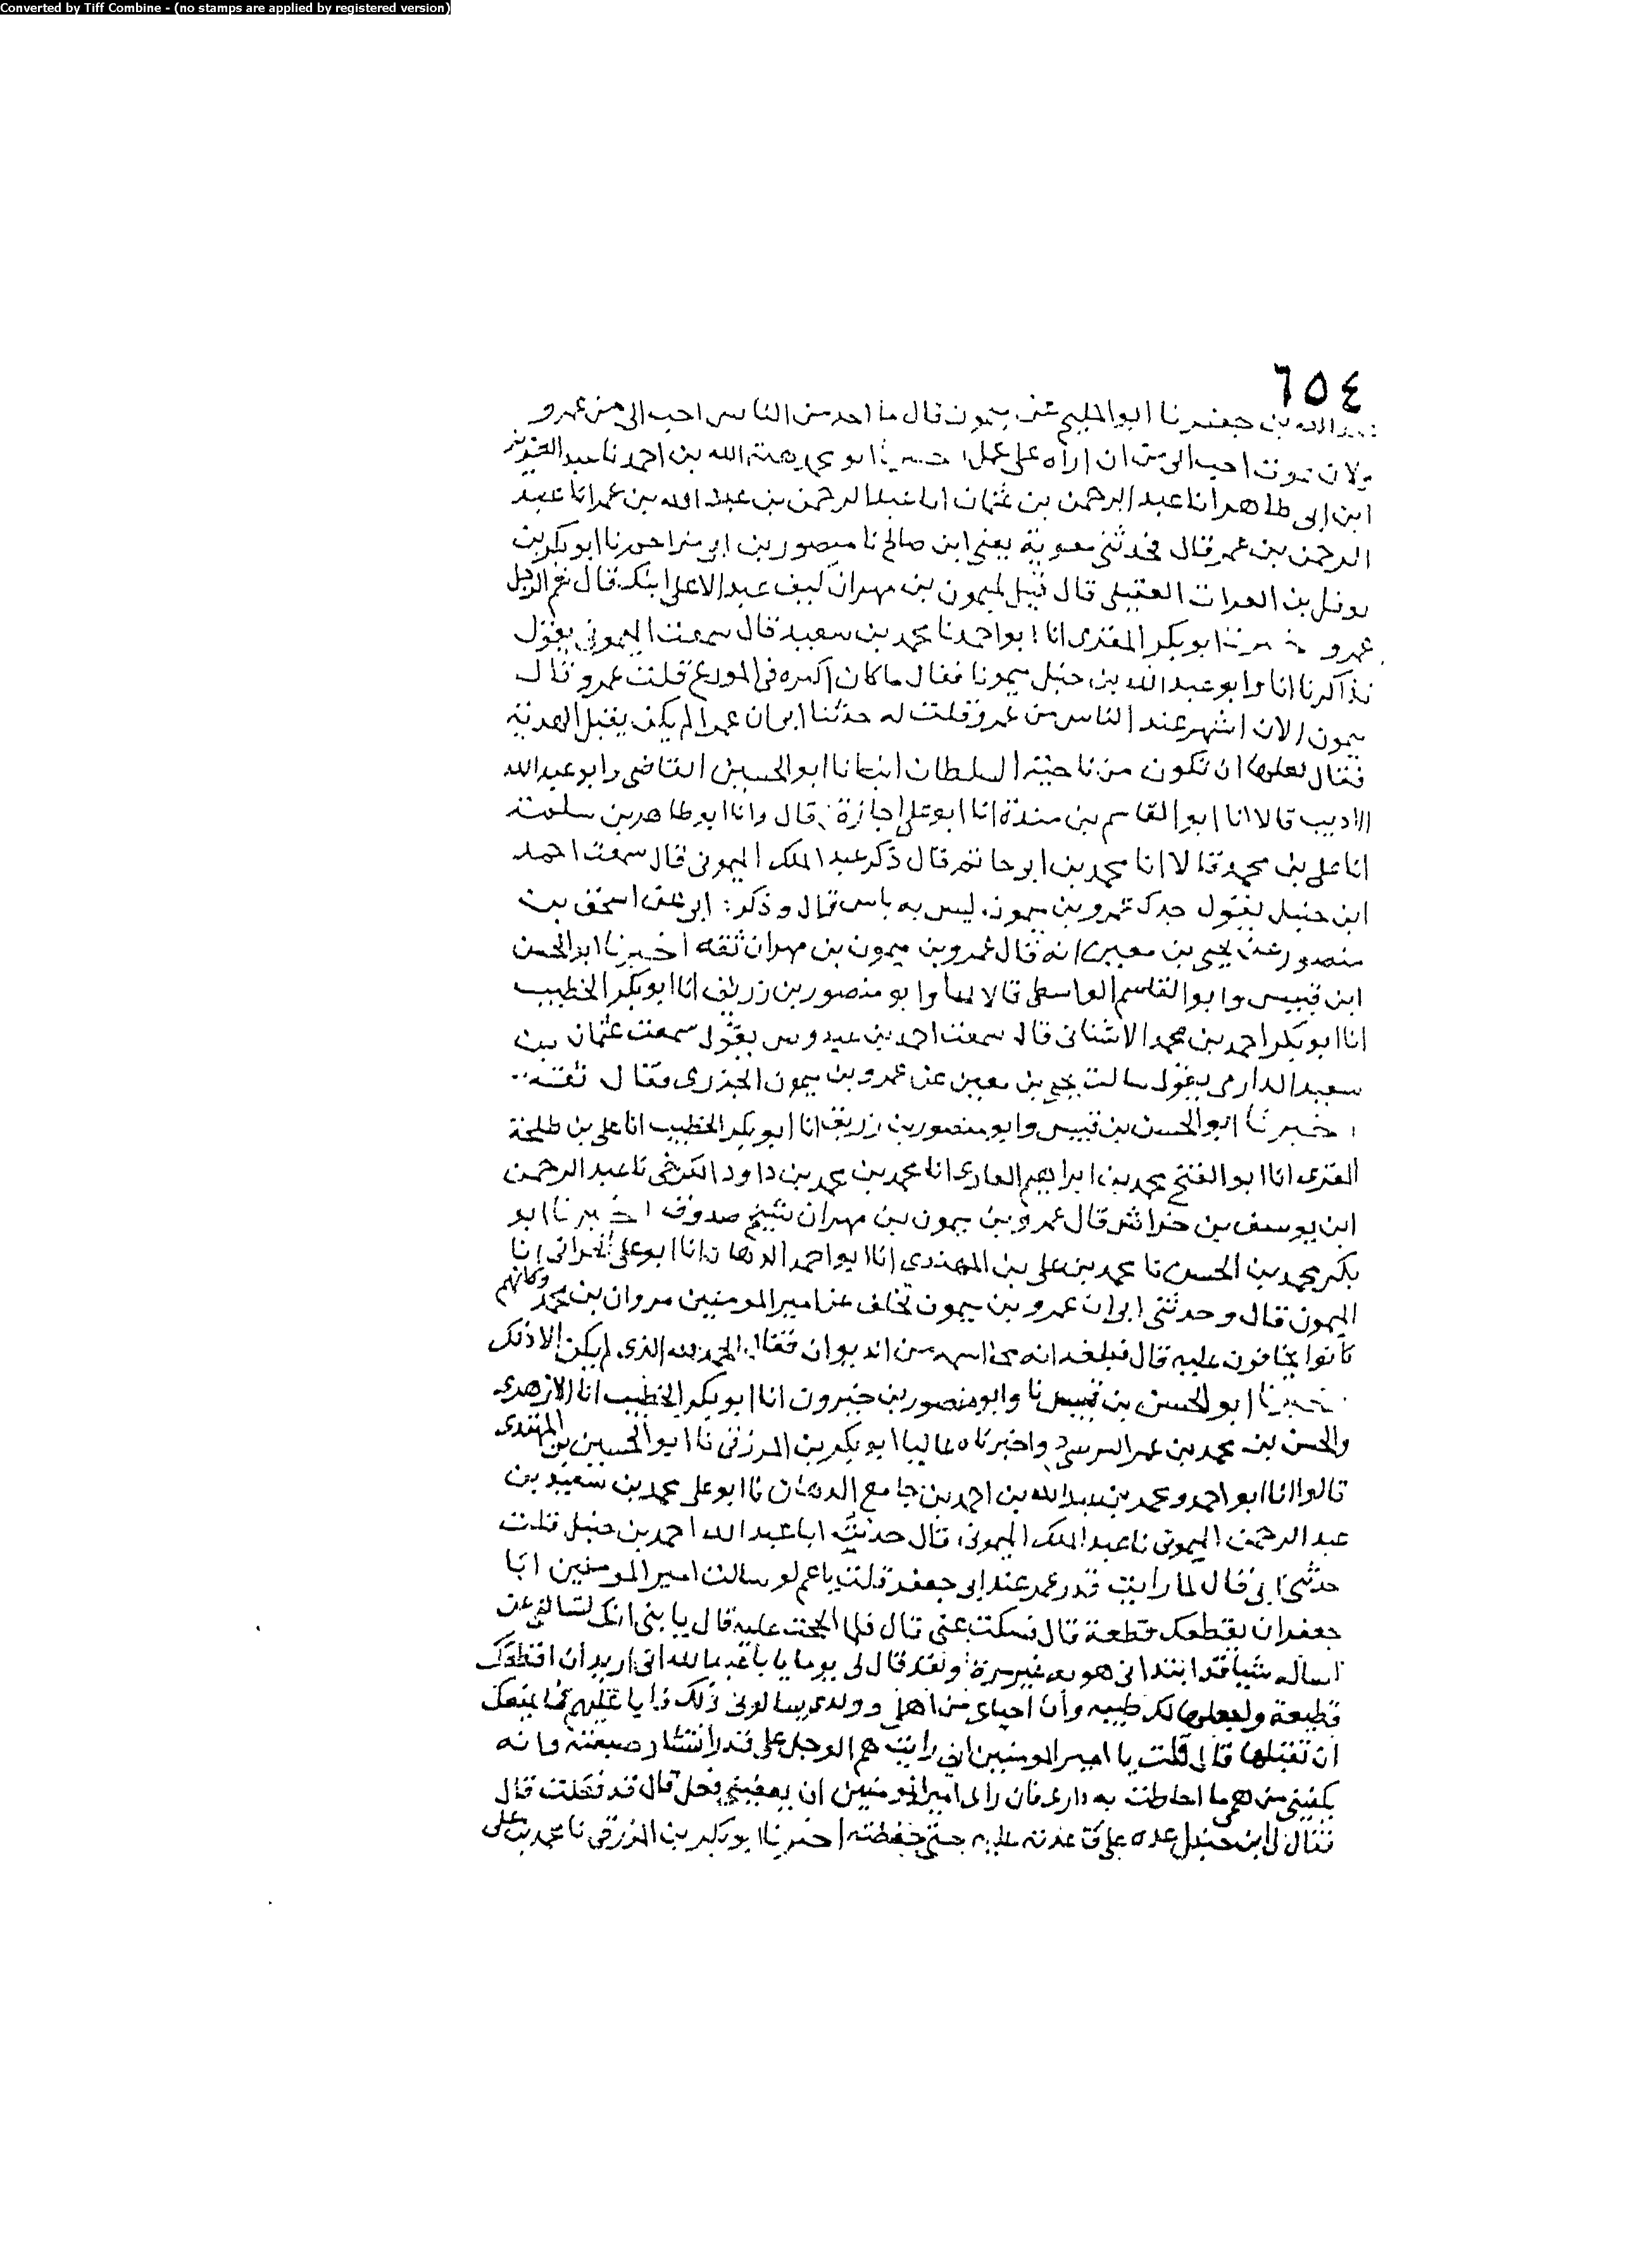 Converted by Tiff Combine - (no stamps are applied by registered version)
٦٥٤
الله بن جعفر نا ابو المليح عن ميمون قال ما احد من الناس احب الى من عمرو
ولان يموت احب الى من ان اراه على عمل هبة الله بن احمد نا عبد العزيز
ابن ابى طاهر انا عبد الرحمن بن عثمان انا عبد الرحمن بن عبد الله بن عمر انا عبد
الرحمن بن عمر قال فحدثنى معوية يعنى ابن صالح نا منصور بن ابى مزاحم نا ابو بكر بن
نوفل بن الفرات العقيلى قال قيل لميمون بن مهران كيف عبد الاعلى ابنك قال نعم الرجل
عمرو ابو بكر المقرى انا ابو احمد نا محمد بن سعيد قال سمعت الميمونى يقول
تذاكرنا انا وابو عبد الله بن حنبل ميمونا فقال ما كان اكبره فى الورع قلت عمرو قال
ميمون الان اشهر عند الناس من عمرو قلت له حدثنا ابى ان عمرا لم يكن يقبل الهدية
فقال لعلها ان تكون من ناحية السلطان انبانا ابو الحسين القاضى وابو عبد الله
الاديب قالا انا ابو القاسم بن مندة انا ابو على اجازة قال وانا ابو طاهر بن سلمة
انا على بن محمد قالا انا محمد بن ابو حاتم قال ذكر عبد الملك الميمونى قال سمعت احمد
ابن حنبل يقول جدك عمرو بن ميمون ليس به باس قال وذكر ابى عن اسحق بن
منصور عن يحيى بن معين انه قال عمرو بن ميمون بن مهران ثقة اخبرنا ابو الحسن
ابن قبيس وابو القاسم الواسطى قالا نا وابو منصور بن زريق انا ابو بكر الخطيب
انا ابو بكر احمد بن محمد الاشنانى قال سمعت احمد بن عبدوس يقول سمعت عثمان بن
سعيد الدارمى يقول سالت يحيى بن معين عن عمرو بن ميمون الجزرى فقال ثقة
اخبرنا ابو الحسن بن قبيس وابو منصور بن زريق انا ابو بكر الخطيب انا على بن طلحة
المقرى انا ابو الفتح محمد بن ابراهيم الغازى انا محمد بن محمد بن داود الكرخى نا عبد الرحمن
ابن يوسف بن خراش قال عمرو بن ميمون بن مهران شيخ صدوق اخبرنا ابو
بكر محمد بن الحسين نا محمد بن على بن المهتدى انا ابو احمد الدهان انا ابو على الحرانى نا
الميمون قال وحدثنى ابى ان عمرو بن ميمون تخلف عن امير المومنين مروان بن محمد وكانهم
كانوا يخافون عليه قال فبلغه انه محا اسمه من الديوان فقال الحمد لله الذى لم يكن الا ذلك
اخبرنا ابو الحسن بن قبيس نا وابو منصور بن خيرون انا ابو بكر الخطيب انا الازهرى
والحسن بن محمد بن عمر النرسى واخبرناه عاليا ابو بكر بن المزرفى نا ابو الحسين بن المهتدى
قالوا انا ابو احمد محمد بن عبد الله بن احمد بن جامع الدهان نا ابو على محمد بن سعيد بن
عبد الرحمن الميمونى نا عبد الملك الميمونى قال حدثت ابا عبد الله احمد بن حنبل قلت
حدثنى ابى قال لما رايت قدر عمر عند ابى جعفر قلت يا عم لو سالت امير المومنين ابا
جعفر ان يقطعك قطعة قال فسكت عنى قال فلما الححت عليه قال يا بنى انك لتسالنى عن
اساله شيا قد ابتدانى هو به غير مرة ولقد قال لى يوما يا با عبد الله انى اريد ان اقطعك
قطيعة واجعلها لك طيبة وان احباى من اهلى وولدى يسالونى ذلك فابا عليهم فما يمنعك
ان تقبلها قال قلت يا امير المومنين انى رايت هم الرجل على قدر انتشار صيعته وانه
يكفينى من همى ما احاطت به دارى فان راى امير المومنين ان يعفينى فعل قال قد فعلت قال
فقال لى ابن حنبل اعده على فاعدته عليه حتى حفظته اخبرنا ابو بكر بن المزرفى نا محمد بن على